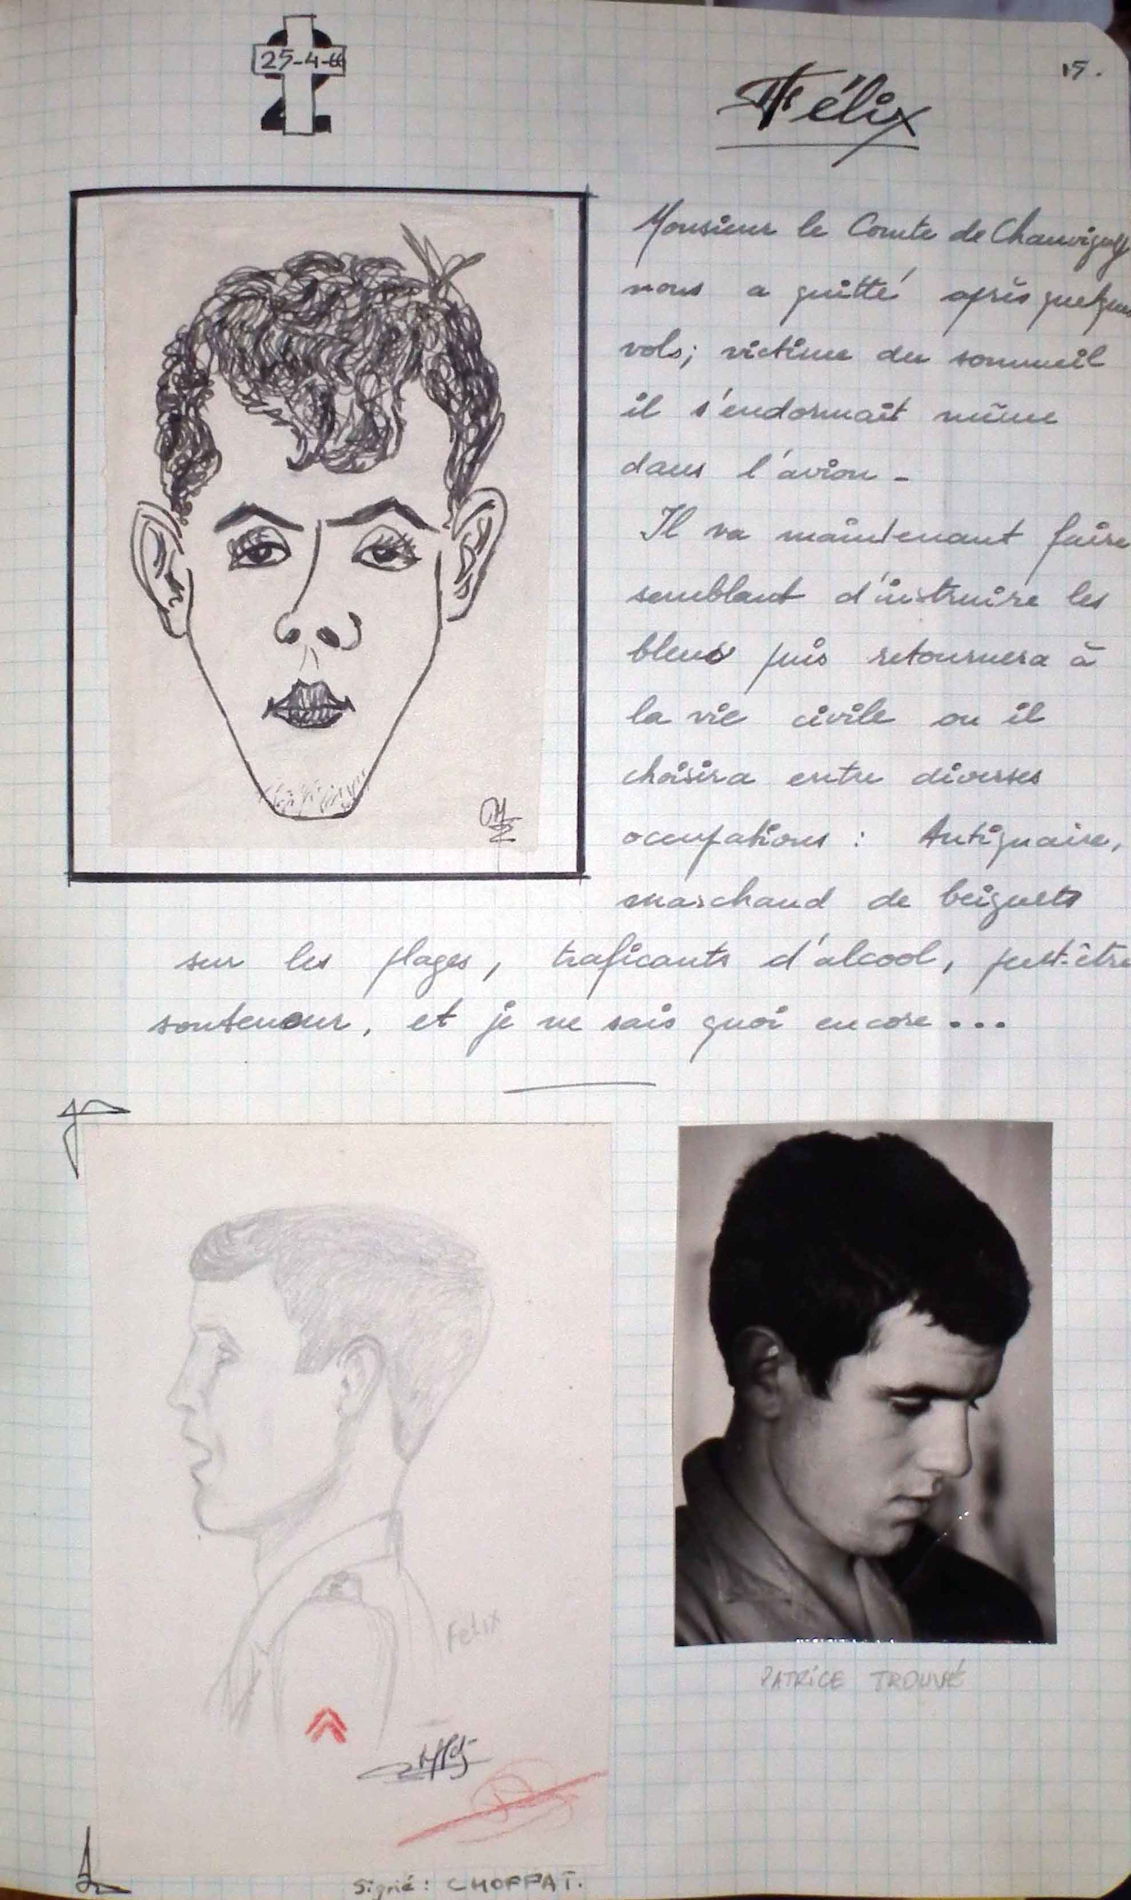 25-4-66
15.
Félix
Monsieur le Comte de Chauvigny
nous a quitté après quelques
vols; victime du sommeil
il s'endormait même
dans l'avion -
Il va maintenant faire
semblant d'instruire les
bleus puis retournera à
la vie civile ou il
choisira entre diverses
occupations : Antiquaire,
marchand de beignets
sur les plages, traficants d'alcool, peut-être
souteneur, et je ne sais quoi encore...
Felix
PATRICE TROUVÉ
Signé : CHOPPAT.